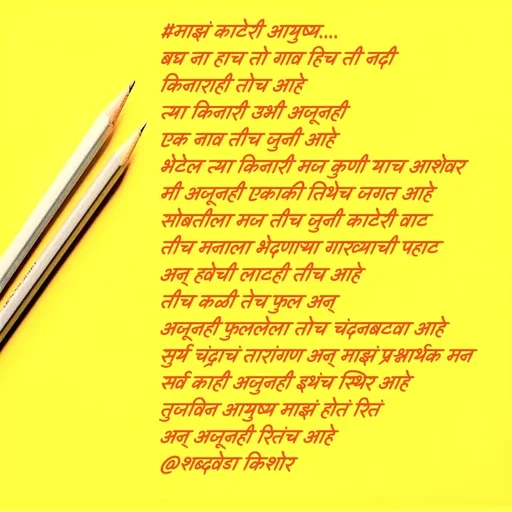 #माझं काटेरी आयुष्य....
बघ ना हाच तो गाव हिच ती नदी
किनाराही तोच आहे
त्या किनारी उभी अजूनही
एक नाव तीच जुनी आहे
भेटेल त्या किनारी मज कुणी याच आशेवर
मी अजूनही एकाकी तिथेच जगत आहे
सोबतीला मज तीच जुनी काटेरी वाट
तीच मनाला भेदणाऱ्या गारव्याची पहाट
अन् हवेची लाटही तीच आहे
तीच कळी तेच फुल अन्
अजूनही फुललेला तोच चंदनबटवा आहे
सुर्य चंद्राचं तारांगण अन् माझं प्रश्नार्थक मन
सर्व काही अजुनही इथंच स्थिर आहे
तुजविन आयुष्य माझं होतं रितं
अन् अजूनही रितंच आहे
@शब्दवेडा किशोर